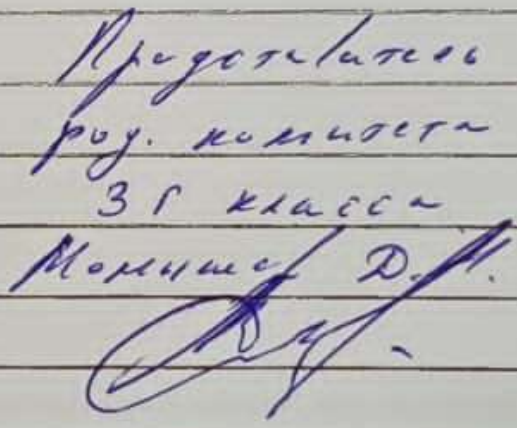 Представитель
род. комитета
3 Г класса
Момышев Д. М.